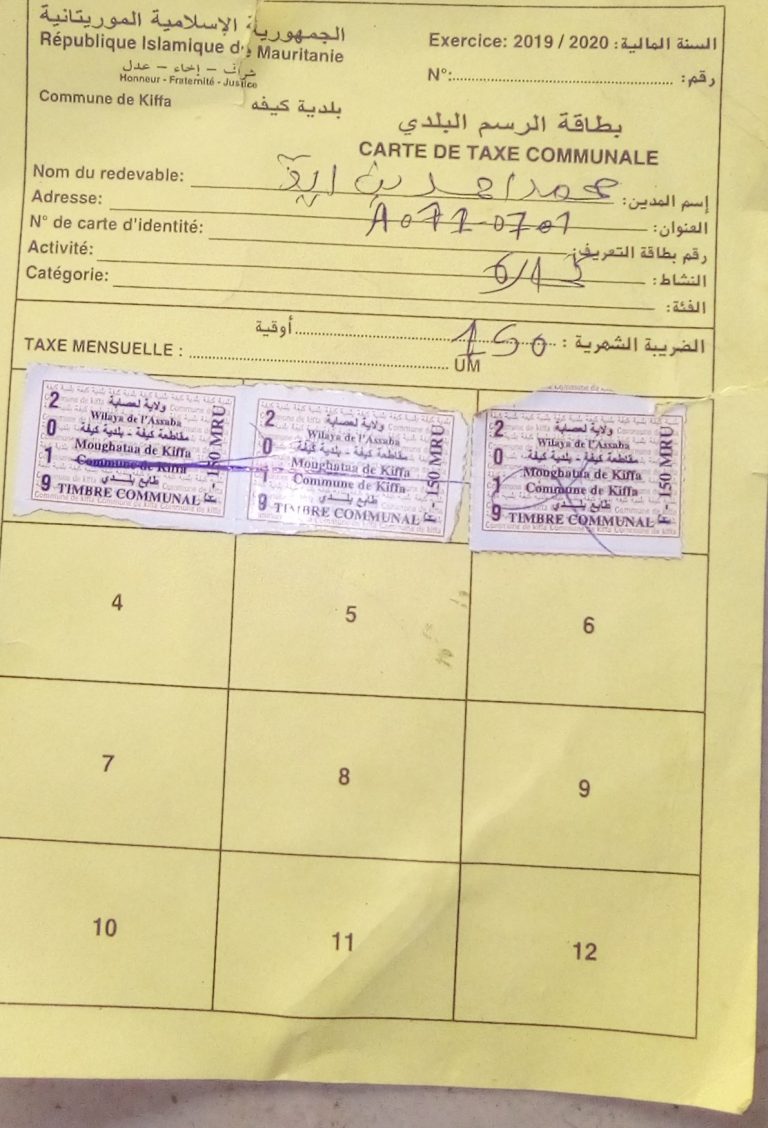 الجمهورية الإسلامية الموريتانية
République Islamique de Mauritanie
شرف – إخاء – عدل
Honneur - Fraternité - Justice
Commune de Kiffa بلدية كيفه
السنة المالية: Exercice: 2019 / 2020
رقم: N°:
بطاقة الرسم البلدي
CARTE DE TAXE COMMUNALE
Nom du redevable: محمد احمد إسم المدين:
Adresse: العنوان:
N° de carte d'identité: رقم بطاقة التعريف:
Activité: النشاط:
Catégorie: الفئة:
الضريبة الشهرية : 150 أوقية
TAXE MENSUELLE : UM
2019
ولاية لعصابة
Wilaya de l'Assaba
مقاطعة كيفة - بلدية كيفة
Moughataa de Kiffa
Commune de Kiffa
طابع بلدي
TIMBRE COMMUNAL
F - 150 MRU
2019
ولاية لعصابة
Wilaya de l'Assaba
مقاطعة كيفة - بلدية كيفة
Moughataa de Kiffa
Commune de Kiffa
طابع بلدي
TIMBRE COMMUNAL
F - 150 MRU
2019
ولاية لعصابة
Wilaya de l'Assaba
مقاطعة كيفة - بلدية كيفة
Moughataa de Kiffa
Commune de Kiffa
طابع بلدي
TIMBRE COMMUNAL
F - 150 MRU
4 5 6
7 8 9
10 11 12